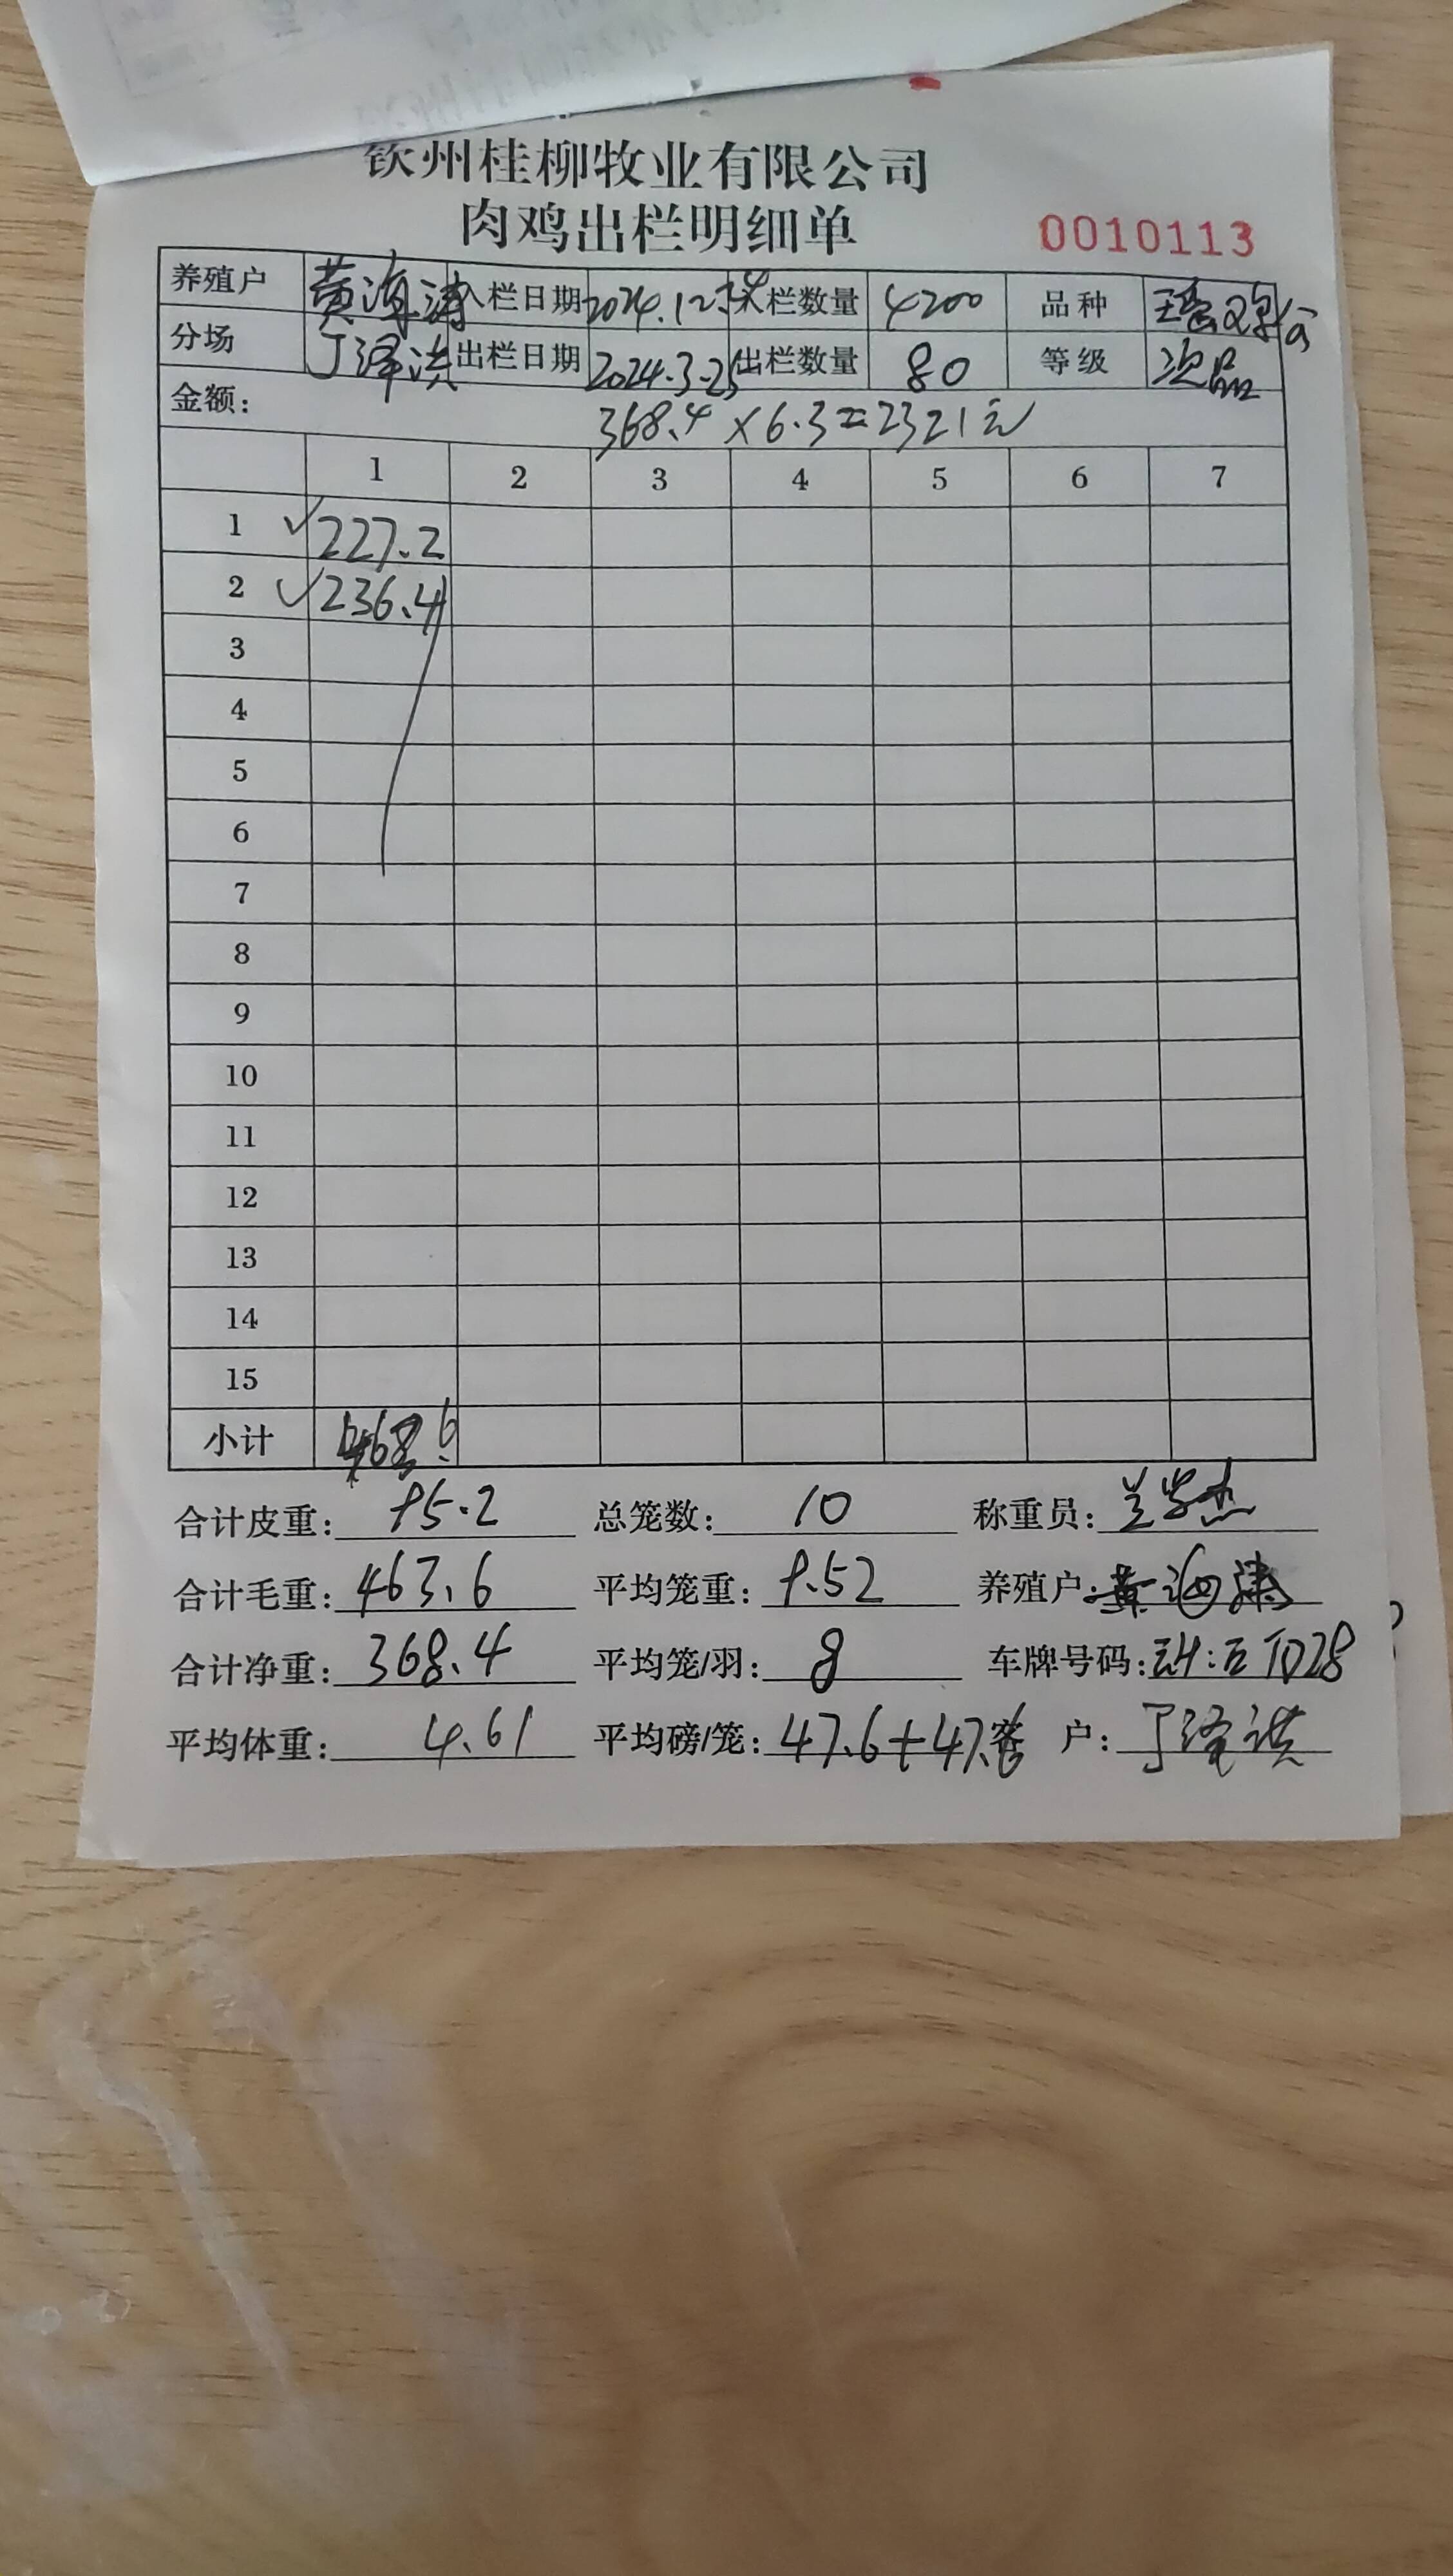 钦州桂柳牧业有限公司
肉鸡出栏明细单 0010113
养殖户 黄海涛 入栏日期 2024.12. 入栏数量 4200 品种
分场 丁泽洪 出栏日期 2024.3.25 出栏数量 80 等级 次品
金额: 368.4×6.3=2321元
1 2 3 4 5 6 7
1 227.2
2 236.4
3
4
5
6
7
8
9
10
11
12
13
14
15
小计
合计皮重: 95.2 总笼数: 10 称重员:
合计毛重: 463.6 平均笼重: 9.52 养殖户: 黄海涛
合计净重: 368.4 平均笼/羽: 8 车牌号码:
平均体重: 4.61 平均磅/笼: 47.6+47.6 户: 丁泽洪